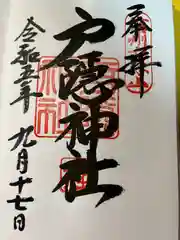 奉拝
戸隠神社
令和五年
九月十七日